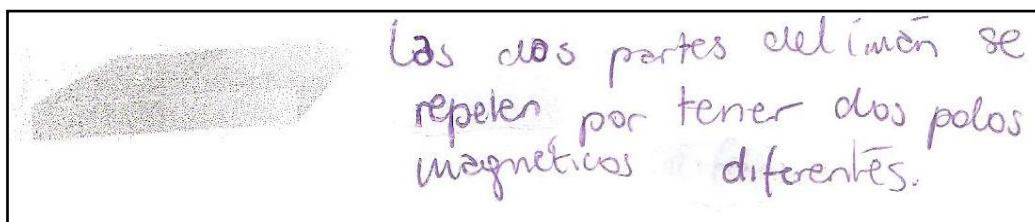 Las dos partes del imán se
repelen por tener dos polos
magnéticos diferentes.